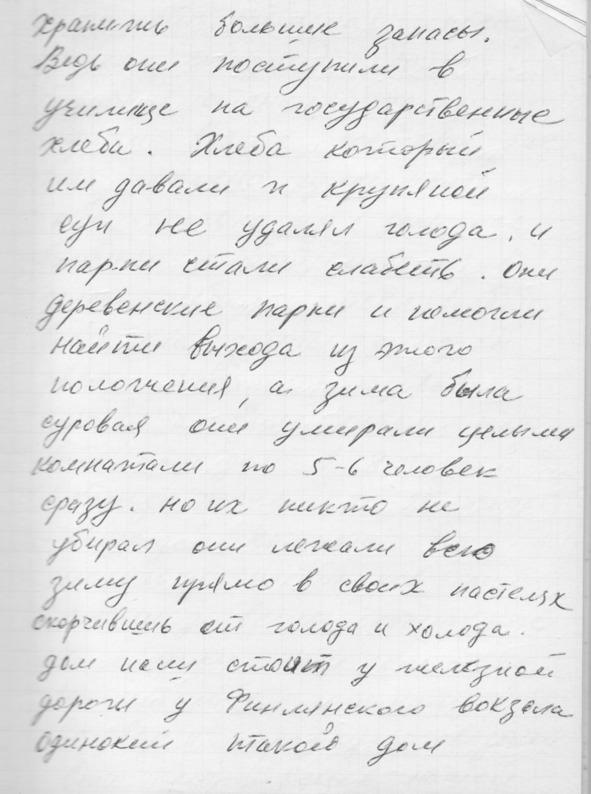 хранить большие запасы.
Ведь они поступили в
училище на государственные
хлеба. Хлеба который
им давали и крупяной
суп не удалял голода. и
парни стали слабеть. Они
деревенские парни и помогли
найти выхода из этого
положения, а зима была
суровая они умирали целыми
комнатами по 5-6 человек
сразу. но их никто не
убирал они лежали всю
зиму прямо в своих пастелях
скорчившись от голода и холода.
дом наш стоит у железной
дороги у Финлянского вокзала
одинокий такой дом